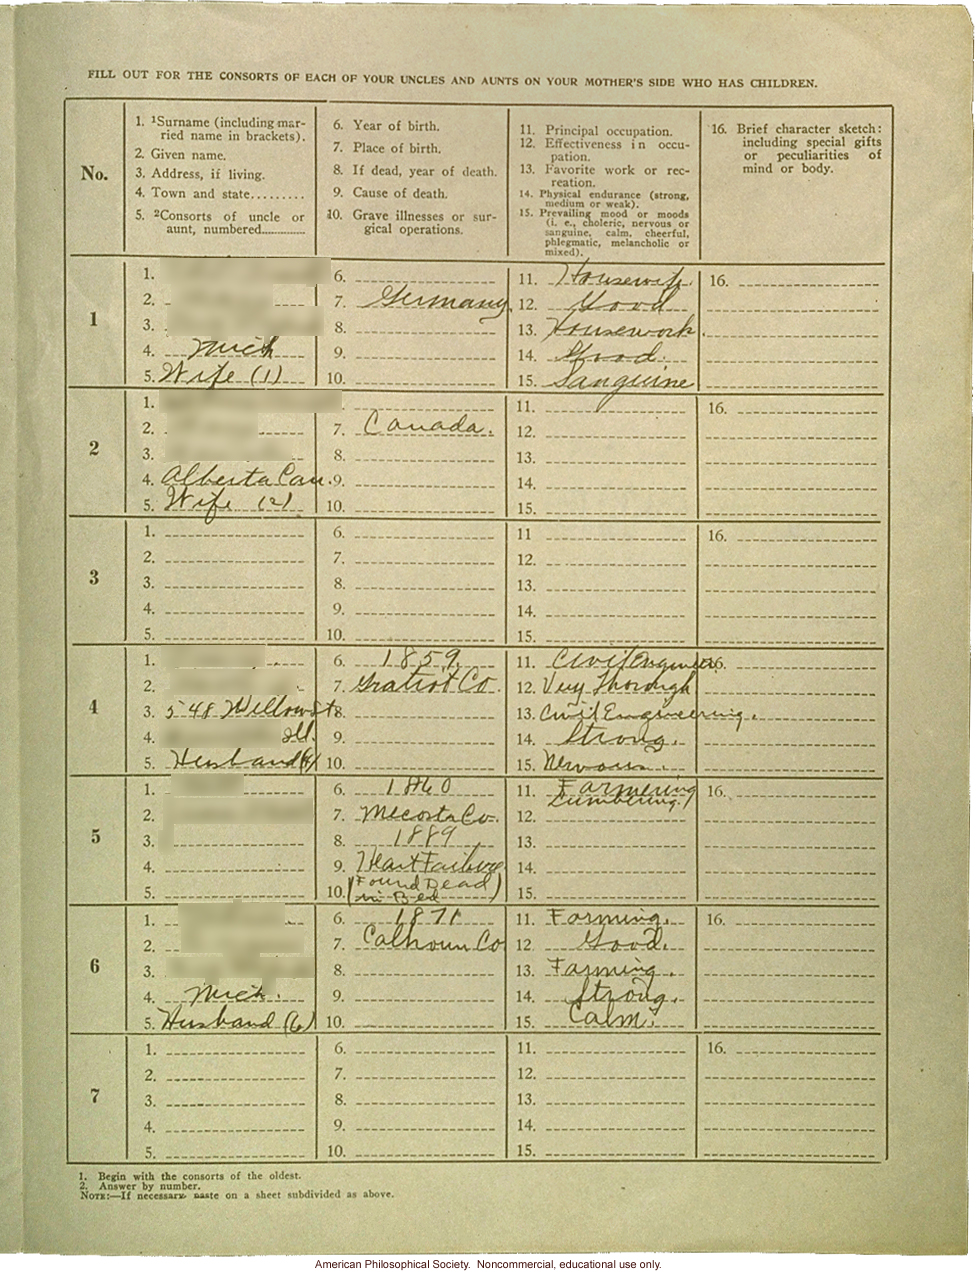 FILL OUT FOR THE CONSORTS OF EACH OF YOUR UNCLES AND AUNTS ON YOUR MOTHER'S SIDE WHO HAS CHILDREN.
No.
1. ¹Surname (including mar-
ried name in brackets).
2. Given name.
3. Address, if living.
4. Town and state.........
5. ²Consorts of uncle or
aunt, numbered............
6. Year of birth.
7. Place of birth.
8. If dead, year of death.
9. Cause of death.
10. Grave illnesses or sur-
gical operations.
11. Principal occupation.
12. Effectiveness in occu-
pation.
13. Favorite work or rec-
reation.
14. Physical endurance (strong,
medium or weak).
15. Prevailing mood or moods
(i. e., choleric, nervous or
sanguine, calm, cheerful,
phlegmatic, melancholic or
mixed).
16. Brief character sketch:
including special gifts
or peculiarities of
mind or body.
1
1.
2.
3.
4. Mich
5. Wife (1)
6.
7. Germany
8.
9.
10.
11. Housewife.
12. Good
13. Housework.
14. Good.
15. Sanguine
16.
2
1.
2.
3.
4. Alberta Can.
5. Wife (2)
7. Canada.
8.
9.
10.
11.
12.
13.
14.
15.
16.
3
1.
2.
3.
4.
5.
6.
7.
8.
9.
10.
11
12.
13.
14.
15.
16.
4
1.
2.
3. 548 Willow St
4. Ill.
5. Husband (4)
6. 1859.
7. Gratiot Co.
8.
9.
10.
11. Civil Engineer
12. Very Thorough
13. Civil Engineering.
14. Strong.
15. Nervous.
16.
5
1.
2.
3.
4.
5.
6. 1860
7. Mecosta Co.
8. 1889
9. Heart Failure
10. (Found Dead)
in Bed
11. Farmering
Lumbering
12.
13.
14.
15.
16.
6
1.
2.
3.
4. Mich.
5. Husband (6)
6. 1871
7. Calhoun Co
8.
9.
10.
11. Farming.
12. Good.
13. Farming.
14. Strong.
15. Calm.
16.
7
1.
2.
3.
4.
5.
6.
7.
8.
9.
10.
11.
12.
13.
14.
15.
16.
1. Begin with the consorts of the oldest.
2. Answer by number.
NOTE:—If necessary paste on a sheet subdivided as above.
American Philosophical Society. Noncommercial, educational use only.